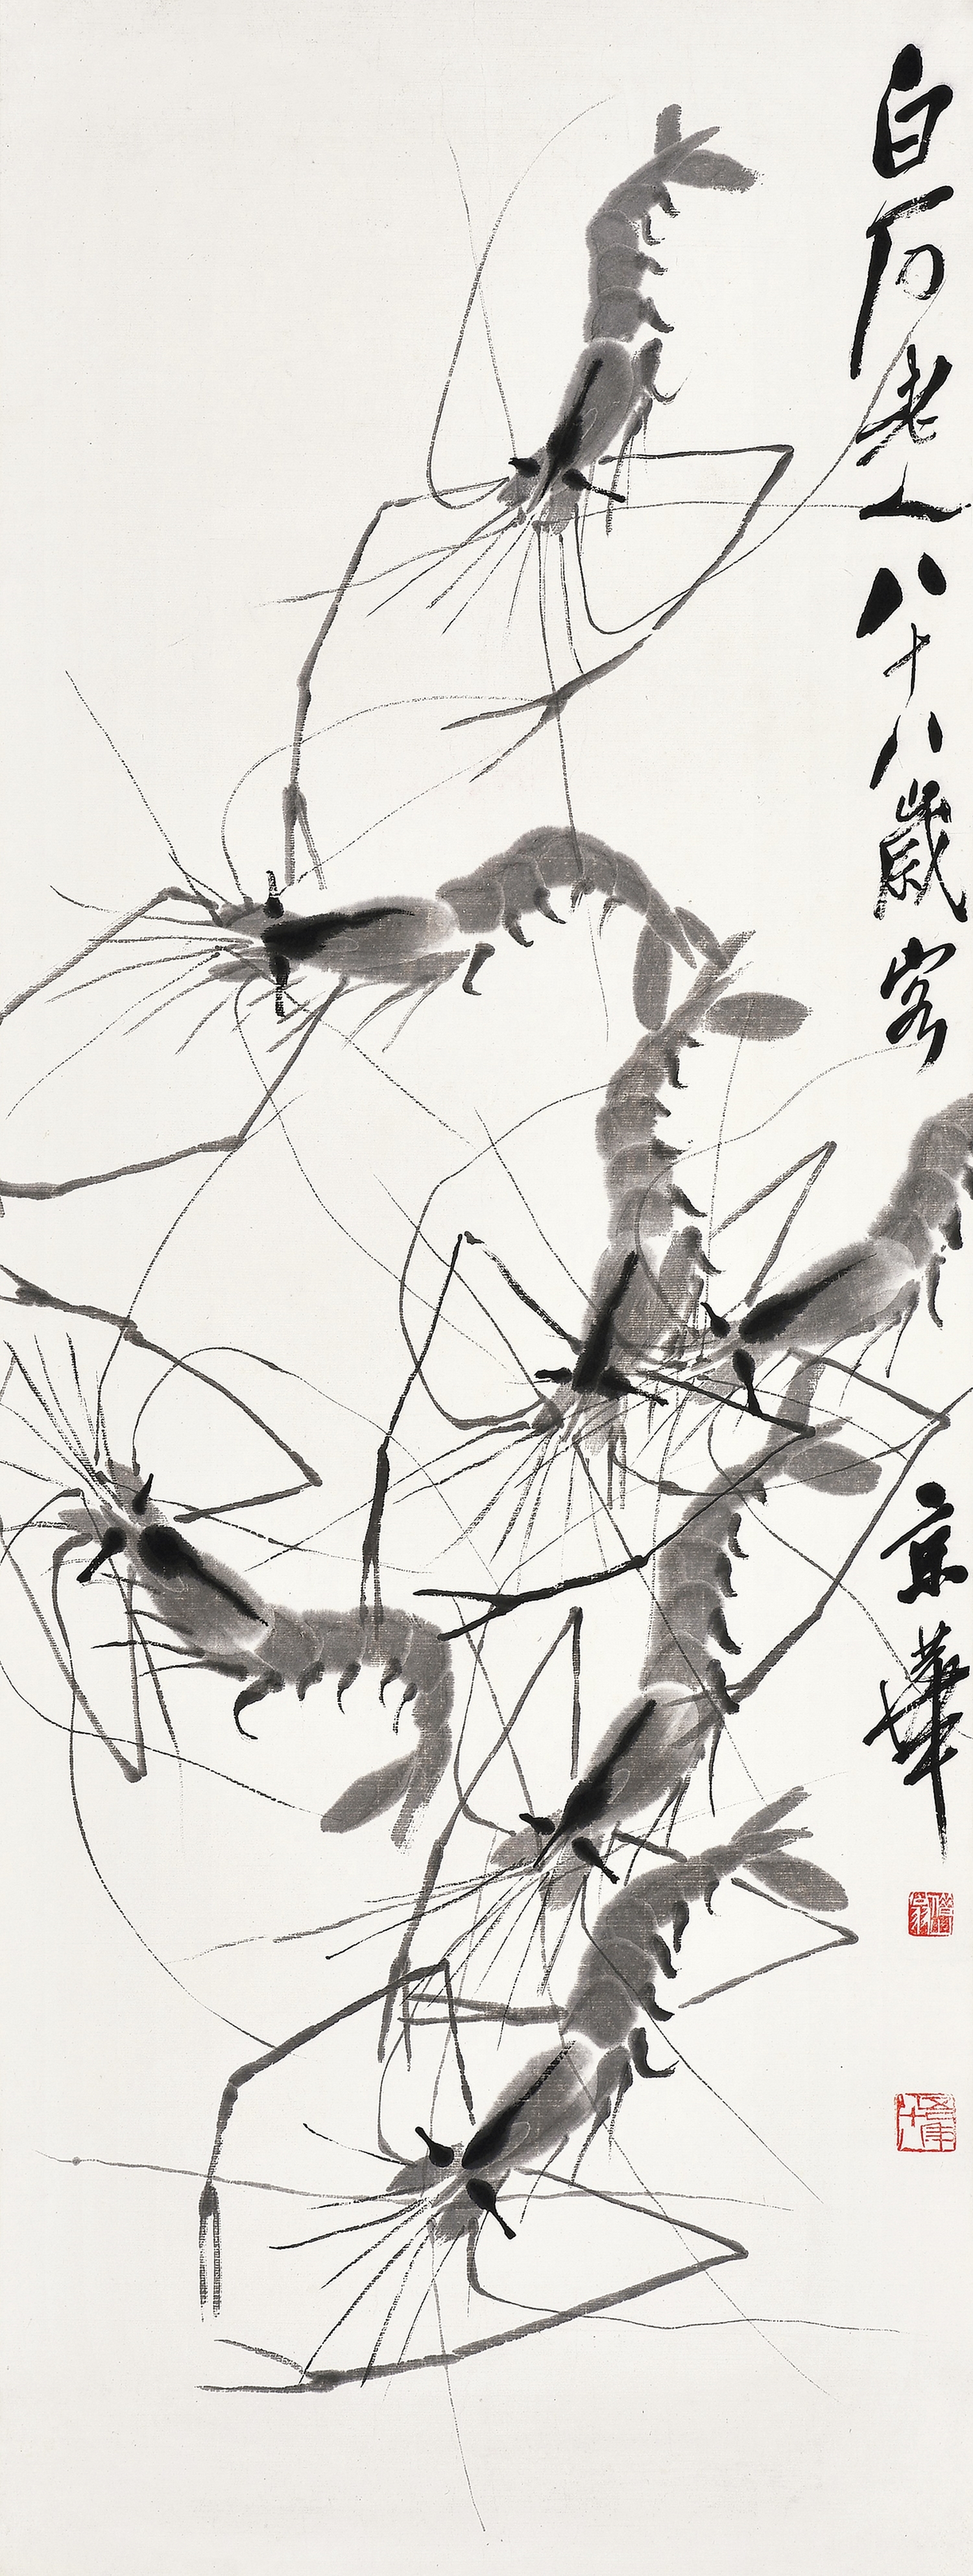 白石老人八十八歲客京華